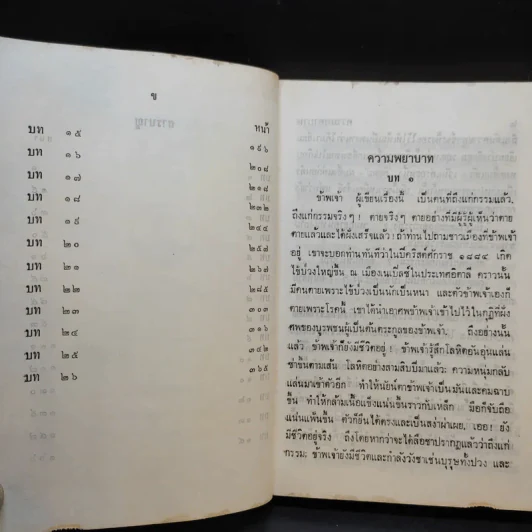 ข
หน้า
บท ๑๕ ๑๙๖
บท ๑๖ ๒๐๘
บท ๑๗ ๒๑๔
บท ๑๘ ๒๓๒
บท ๑๙ ๒๔๔
บท ๒๐
บท ๒๑ ๒๖๗
บท ๒๒ ๒๘๕
บท ๒๓ ๓๐๓
บท ๒๔ ๓๑๖
บท ๒๕ ๓๔๒
บท ๒๖ ๓๖๕
ความพยาบาท
บท ๑
ข้าพเจ้า ผู้เขียนเรื่องนี้ เป็นคนที่ถึงแก่กรรมแล้ว,
ถึงแก่กรรมจริงๆ! ตายจริงๆ ตายอย่างที่มีผู้รู้ผู้เห็นว่าตาย
ตายแล้วและได้ฝังเสร็จแล้ว! ถ้าท่านไปถามชาวเมืองที่ข้าพเจ้า
อยู่ เขาจะบอกท่านทันทีว่าในปีคริสตศักราช ๑๘๘๔ เกิด
ไข้ป่วงใหญ่ขึ้น ณ เมืองเนเปิลซ์ในประเทศอิตาลี คราวนั้น
มีคนตายเพราะไข้ป่วงเป็นนักเป็นหนา และตัวข้าพเจ้าเองก็
ตายเพราะโรคนี้ เขาได้นำเอาศพข้าพเจ้าเข้าไปไว้ในกุฏิที่ฝัง
ศพของบุรพชนผู้เป็นต้นตระกูลของข้าพเจ้า. ถึงอย่างนั้น
แล้ว ข้าพเจ้าก็ยังมีชีวิตอยู่! ข้าพเจ้ารู้สึกโลหิตอันอุ่นแล่น
ซ่าขึ้นตามเส้น โลหิตอย่างสามสิบปีมาแล้ว: ความหนุ่มกลับ
แล่นมาเข้าตัวอีก ทำให้นัยน์ตาข้าพเจ้าเป็นมันและคมฉาบ
ขึ้น ทำให้กล้ามเนื้อแข็งแน่นขึ้นราวกับเหล็ก มือก็จับถือ
แน่นแฟ้นขึ้น ตัวก็ยืนได้ตรงและเป็นสง่าผ่าเผย, เออ! ยัง
มีชีวิตอยู่จริง ถึงโดยหากว่าจะได้ลือชาปรากฏแล้วว่าถึงแก่
กรรม; ข้าพเจ้ายังมีชีวิตและกำลังวังชาเช่นบุรุษทั้งปวง และ